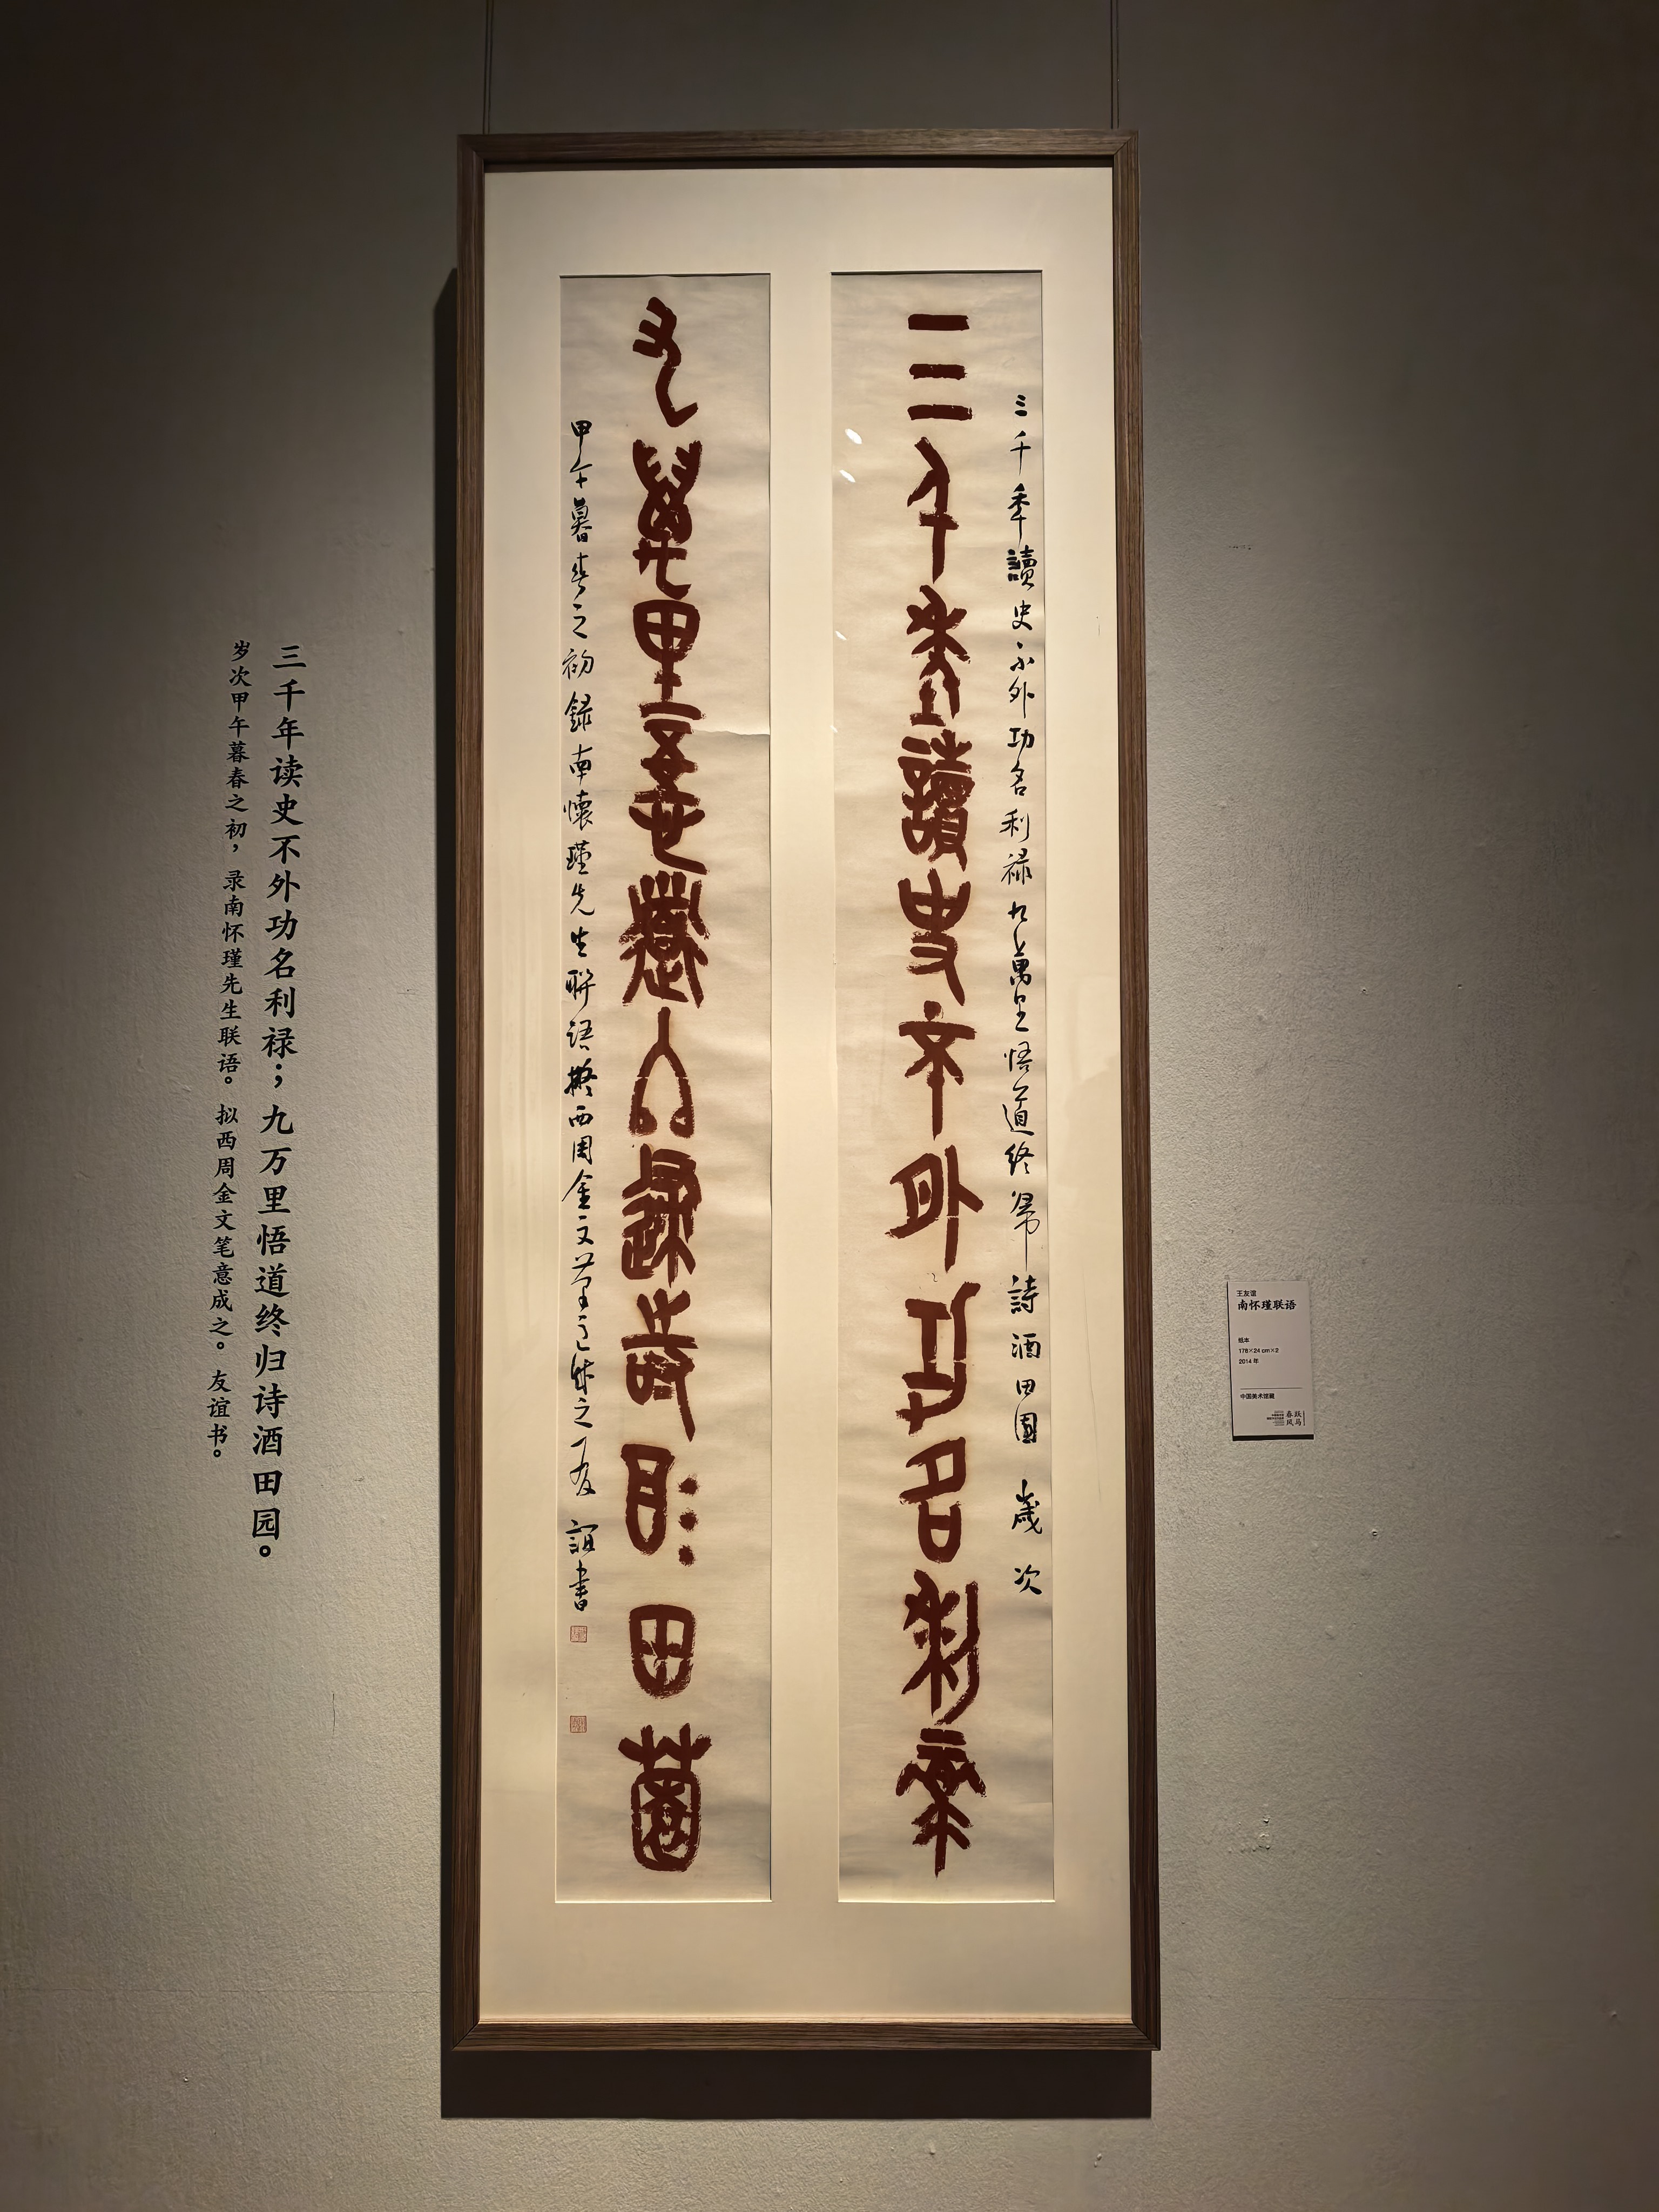 三千年讀史不外功名利禄
三千年讀史不外功名利禄九萬里悟道終歸詩酒田園 歲次
九萬里悟道終歸詩酒田園
甲午暮春之初錄南懷瑾先生聯語擬西周金文筆意成之友誼書
三千年读史不外功名利禄；九万里悟道终归诗酒田园。
岁次甲午暮春之初，录南怀瑾先生联语。拟西周金文笔意成之。友谊书。
王友谊
南怀瑾联语
纸本
178×24 cm×2
2014 年
中国美术馆藏
跃马
春风